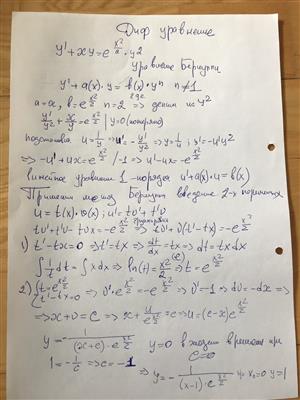 Диф уравнение
y' + xy = e^{x²/2} · y²
уравнение Бернулли
y' + a(x) · y = b(x) · yⁿ n ≠ 1
a = x, b = e^{x²/2} n = 2 => делим на y²
y'/y² + x/y = e^{x²/2} | y=0 (
подстановка u = 1/y => u' = - y'/y² => y = 1/u ; y' = -u'y²
=> -u' + ux = e^{x²/2} /·-1 => u' - ux = -e^{x²/2}
линейное уравнение 1-порядка u' + a(x)·u = b(x)
Применим метод Бернулли введение 2-х переменных
u = t(x) · v(x); u' = t v' + t'v
tv' + t'v - tvx = -e^{x²/2} => tv' + v(t' - tx) = -e^{x²/2}
1) t' - tx = 0 => t' = tx => dt/dx = tx => dt = tx dx
∫ 1/t dt = ∫ x dx => ln(t) = x²/2 => t = e^{x²/2}
2) { t = e^{x²/2} t' - tx = 0 => v' · e^{x²/2} = -e^{x²/2} => v' = -1 => dv = -dx =>
=> x + v = C => x + u/e^{x²/2} = c => u = (c-x)e^{x²/2}
y = - 1/((x+c) · e^{x²/2}) y=0 входит в решения при
1 = - 1/c => c = -1 C = ∞
=> y = - 1/((x-1) · e^{x²/2}) x₀=0 y=1